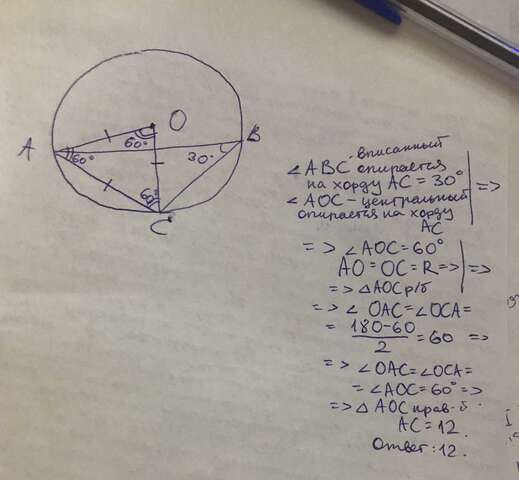 O
A
B
C
60°
60°
60°
30°
вписанный
∠ABC опирается
на хорду AC = 30°
∠AOC – центральный
опирается на хорду
AC
=>
=> ∠AOC = 60°
AO = OC = R => =>
=> △AOC р/б
=> ∠OAC = ∠OCA =
= 180-60 / 2 = 60 =>
=> ∠OAC = ∠OCA =
= ∠AOC = 60° =>
=> △AOC прав-й
AC = 12.
Ответ: 12.